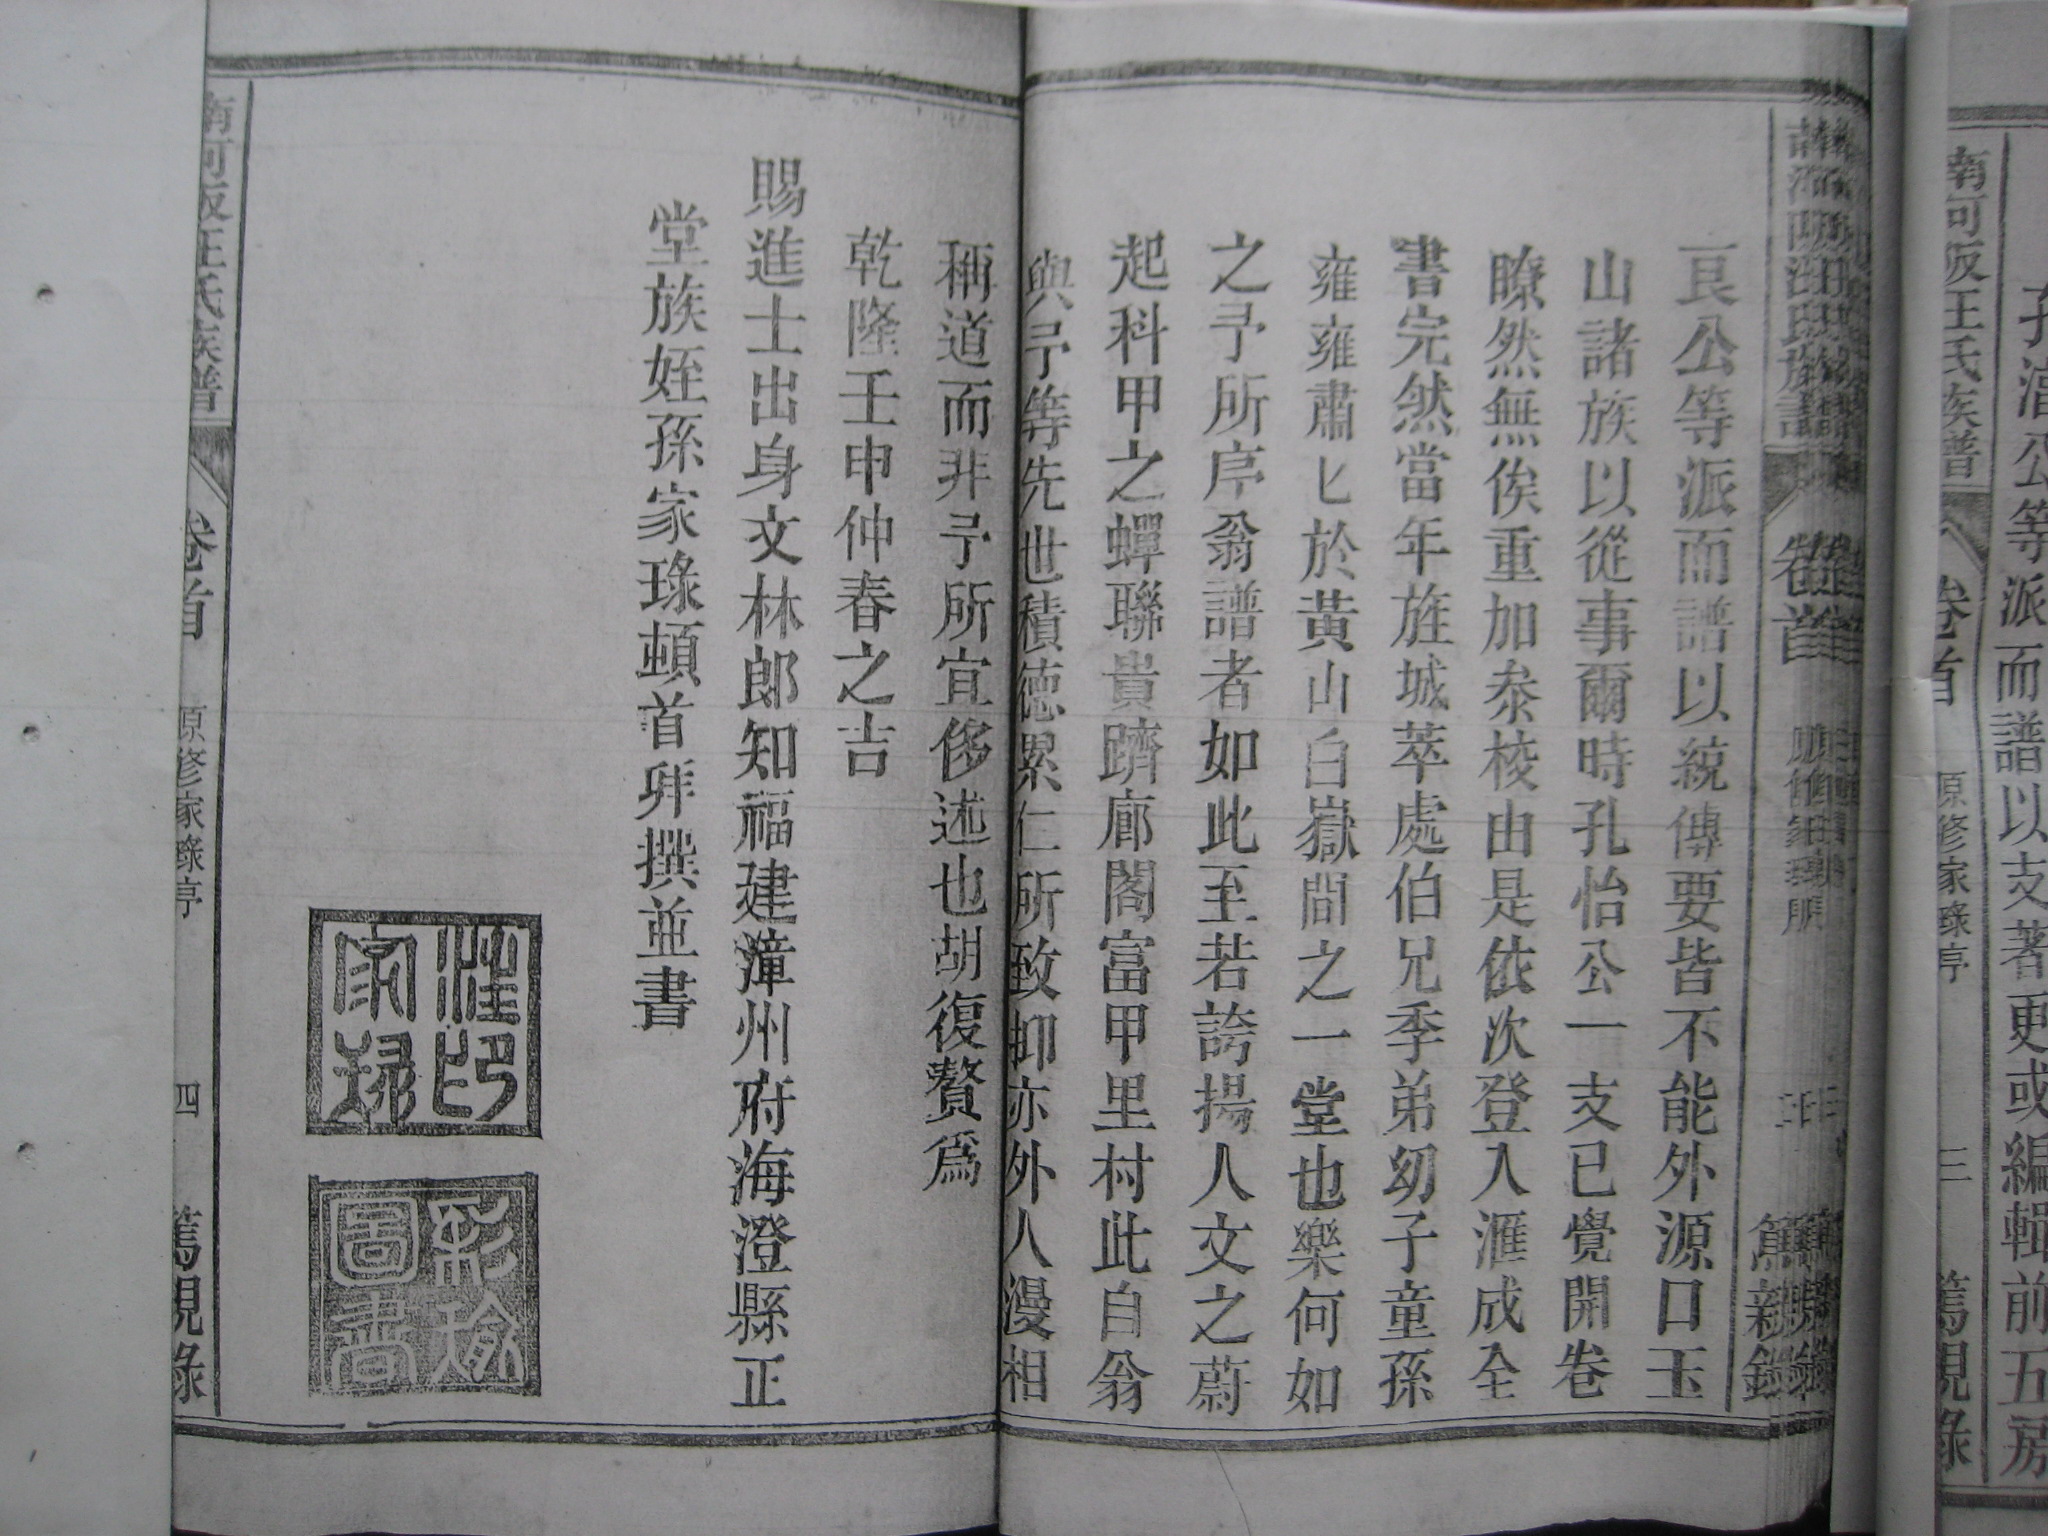 孔湻公等派而譜以支著更或編輯前五房
南河阪汪氏族譜 卷首 原修家琭序 三 篤親錄
艮公等派而譜以統傳要皆不能外源口玉
山諸族以從事爾時孔怡公一支已覺開卷
瞭然無俟重加叅梭由是依次登入滙成全
書完然當年旌城萃處伯兄季弟幼子童孫
雍雍肅匕於黃山白嶽間之一堂也樂何如
之予所序翁譜者如此至若誇揚人文之蔚
起科甲之蟬聯貴躋廊閣富甲里村此自翁
與予等先世積德累仁所致抑亦外人漫相
稱道而非予所宜侈述也胡復贅為
乾隆壬申仲春之吉
賜進士出身文林郎知福建漳州府海澄縣正
堂族姪孫家琭頓首拜撰並書
汪印家琭
圖書
南河阪汪氏族譜 卷首 原修家琭序 四 篤親錄